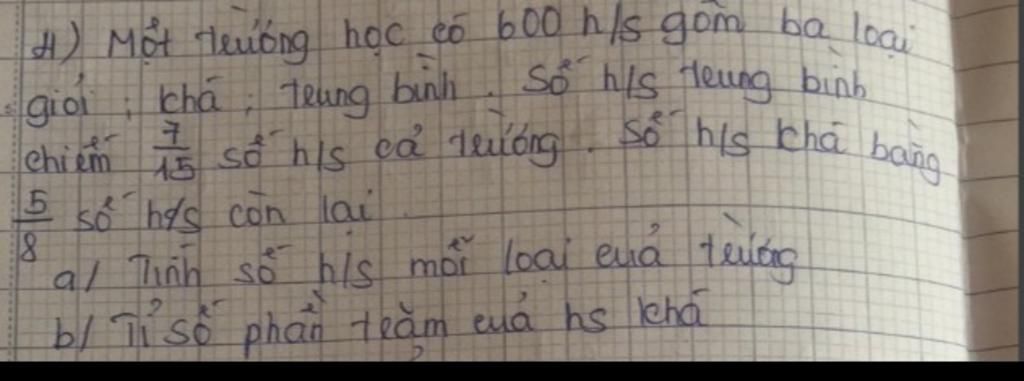 4) Một trường học có 600 h/s gồm ba loại
giỏi; khá; trung bình. Số h/s trung bình
chiếm 7/15 số h/s cả trường. Số h/s khá bằng
5/8 số h/s còn lại.
a/ Tính số h/s mỗi loại của trường
b/ Tỉ số phần trăm của hs khá